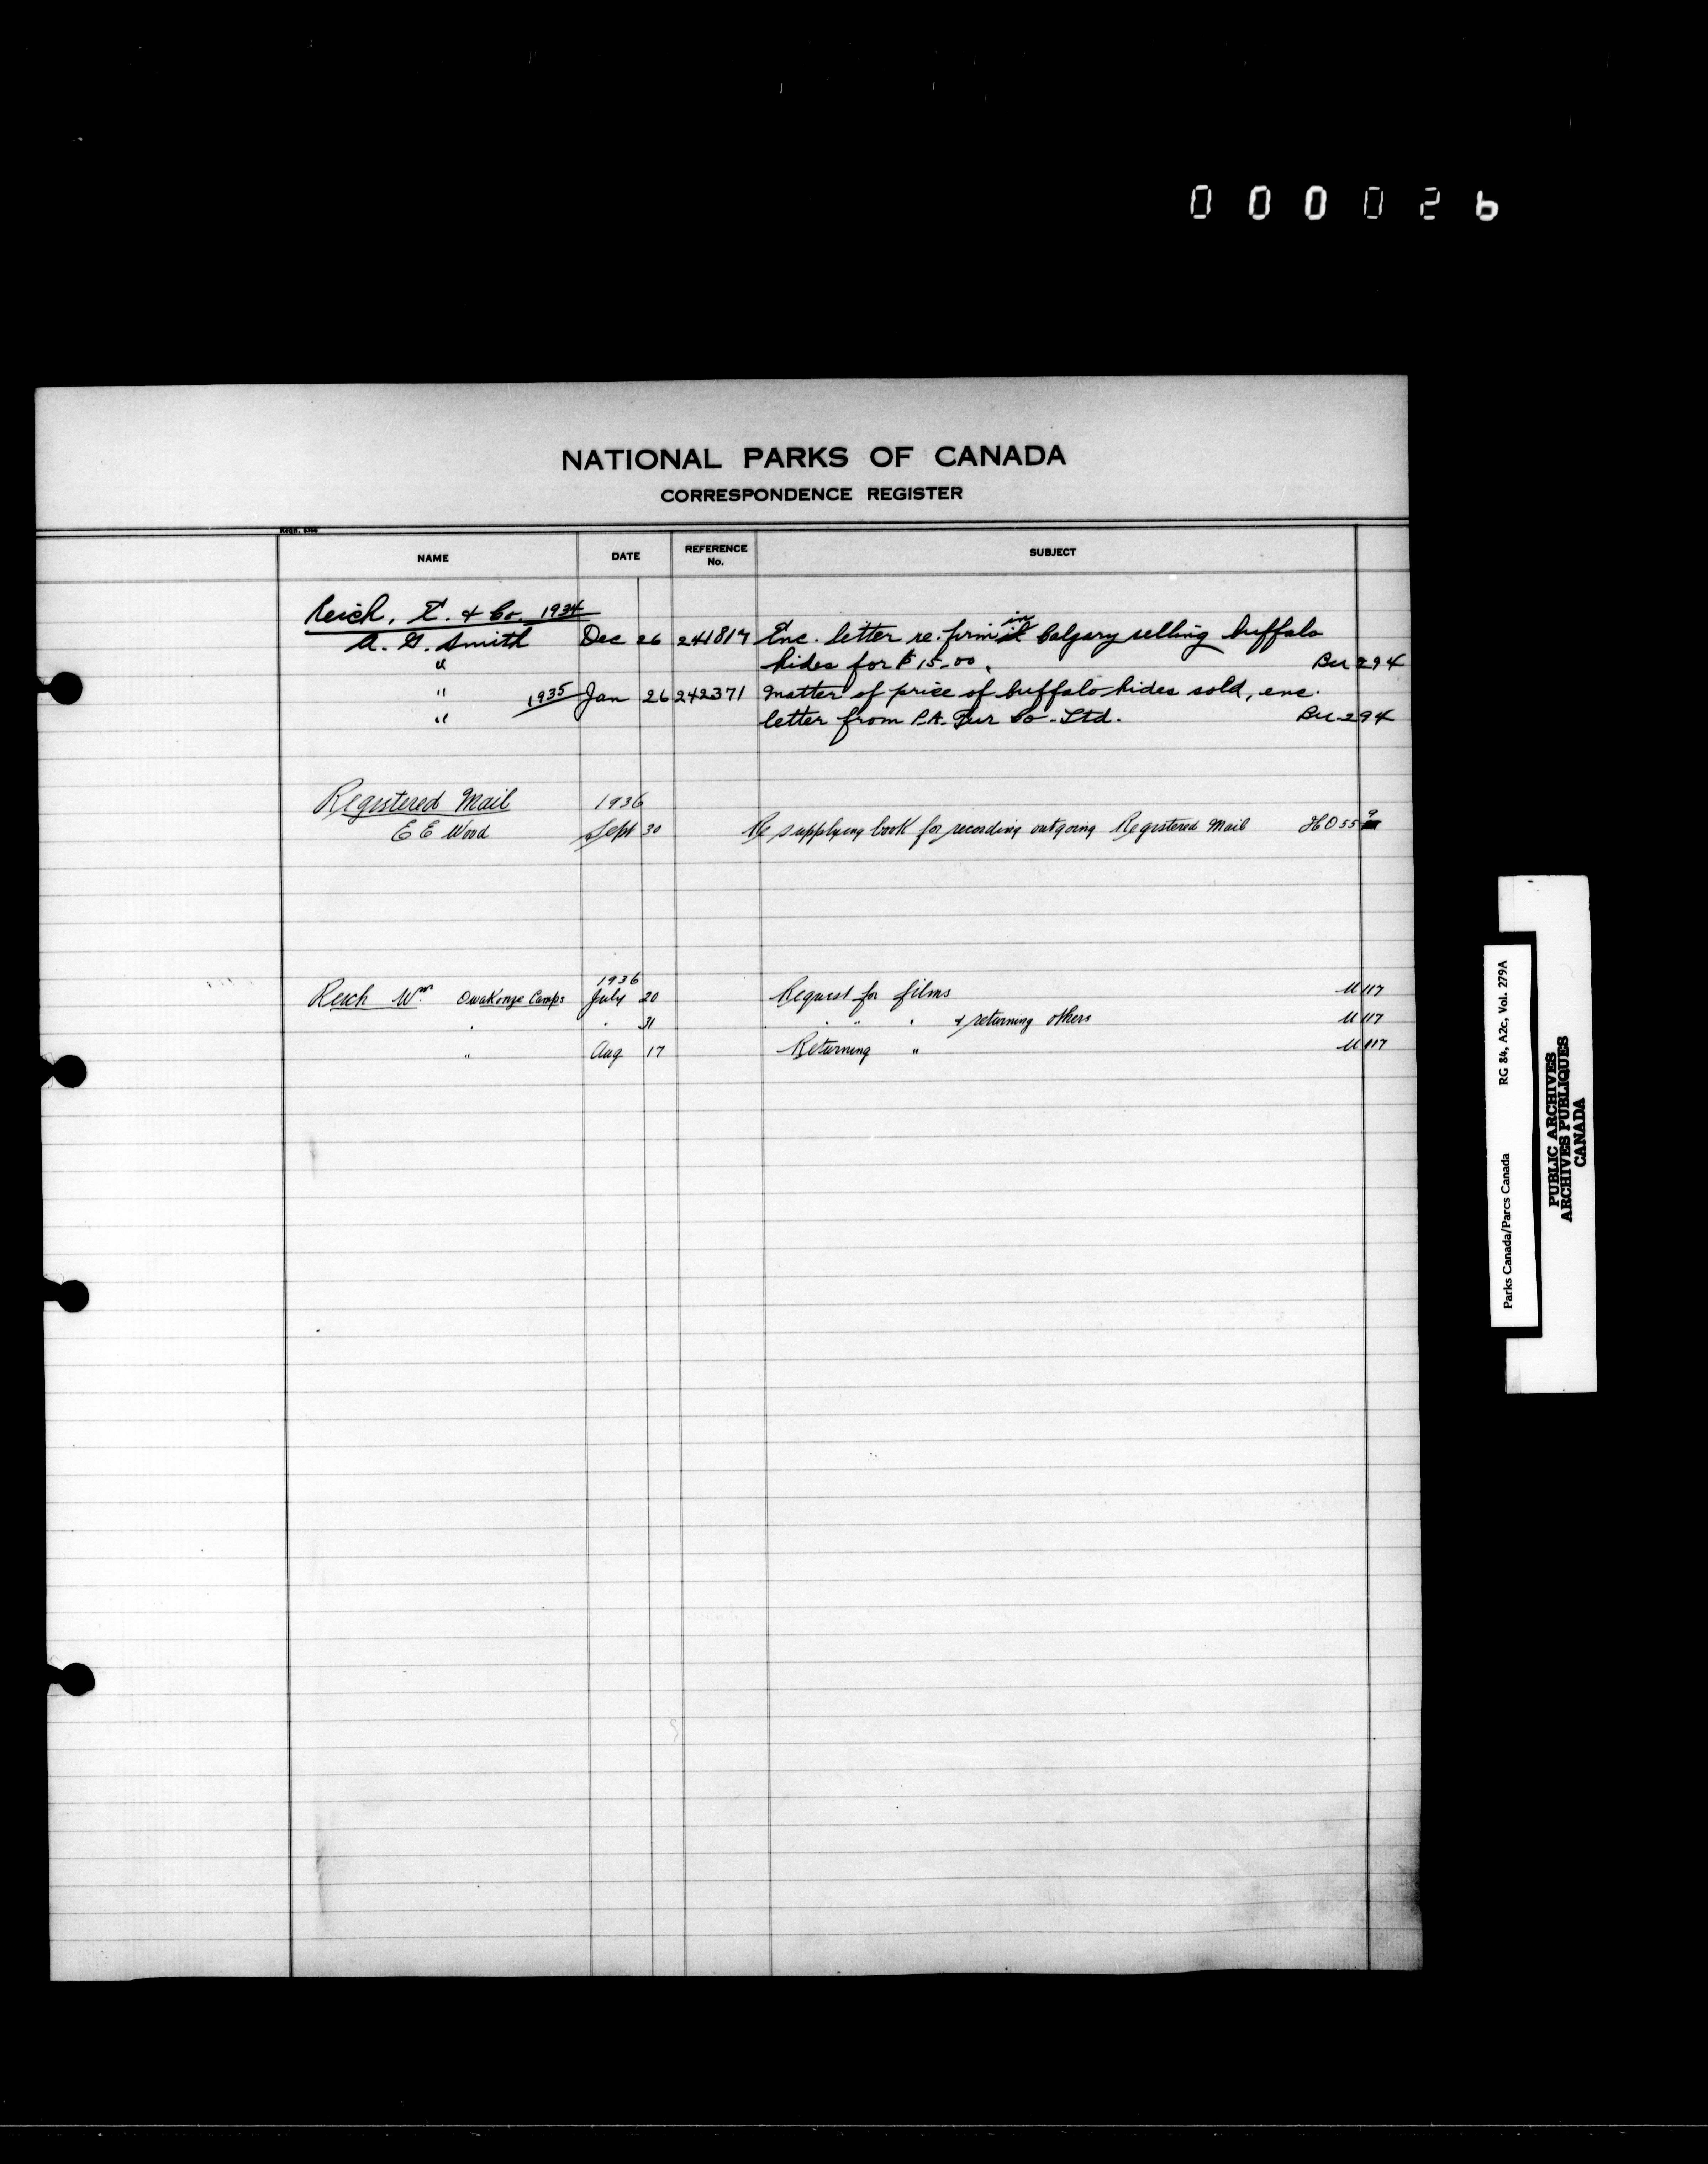 000026
NATIONAL PARKS OF CANADA
CORRESPONDENCE REGISTER
NAME DATE REFERENCE No. SUBJECT
Reich, E. & Co. 1934
A. G. Smith Dec 26 241817 Enc. letter re. firm in Calgary selling buffalo
" hides for $15.00. Bu 294
" 1935 Jan 26 242371 Matter of price of buffalo hides sold, enc.
" letter from P.A. Fur Co. Ltd. Bu 294
Registered Mail 1936
E E Wood Sept 30 Re supplying book for recording outgoing Registered Mail HO 559
1936
Reich Wm. Owakonze Camps July 20 Request for films U 117
" " 31 " " " & returning others U 117
" Aug 17 Returning " U 117
Parks Canada/Parcs Canada RG 84, A2c, Vol. 279A
PUBLIC ARCHIVES
ARCHIVES PUBLIQUES
CANADA